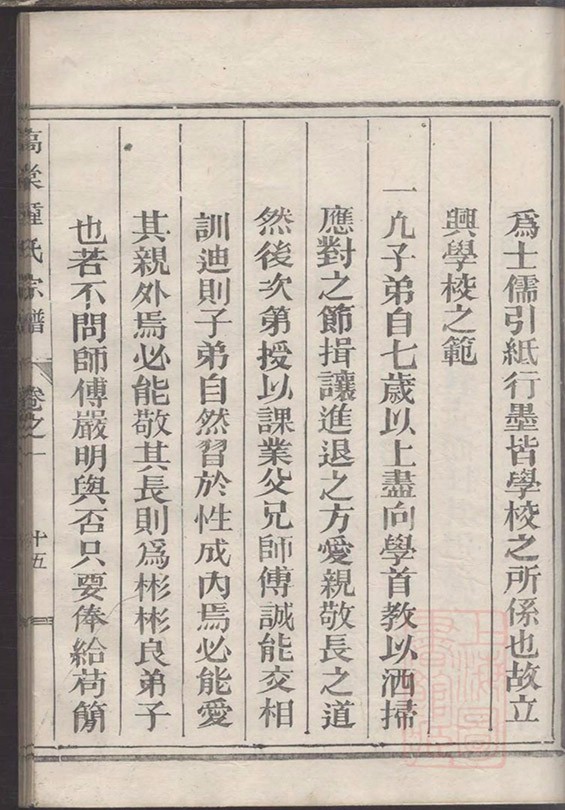 爲士儒引紙行墨皆學校之所係也故立
興學校之範
一凢子弟自七歲以上盡向學首教以洒掃
應對之節揖讓進退之方愛親敬長之道
然後次第授以課業父兄師傅誠能交相
訓迪則子弟自然習於性成內焉必能愛
其親外焉必能敬其長則爲彬彬良弟子
也若不問師傅嚴明與否只要俸給苟簡
氏宗譜 卷之一 十五